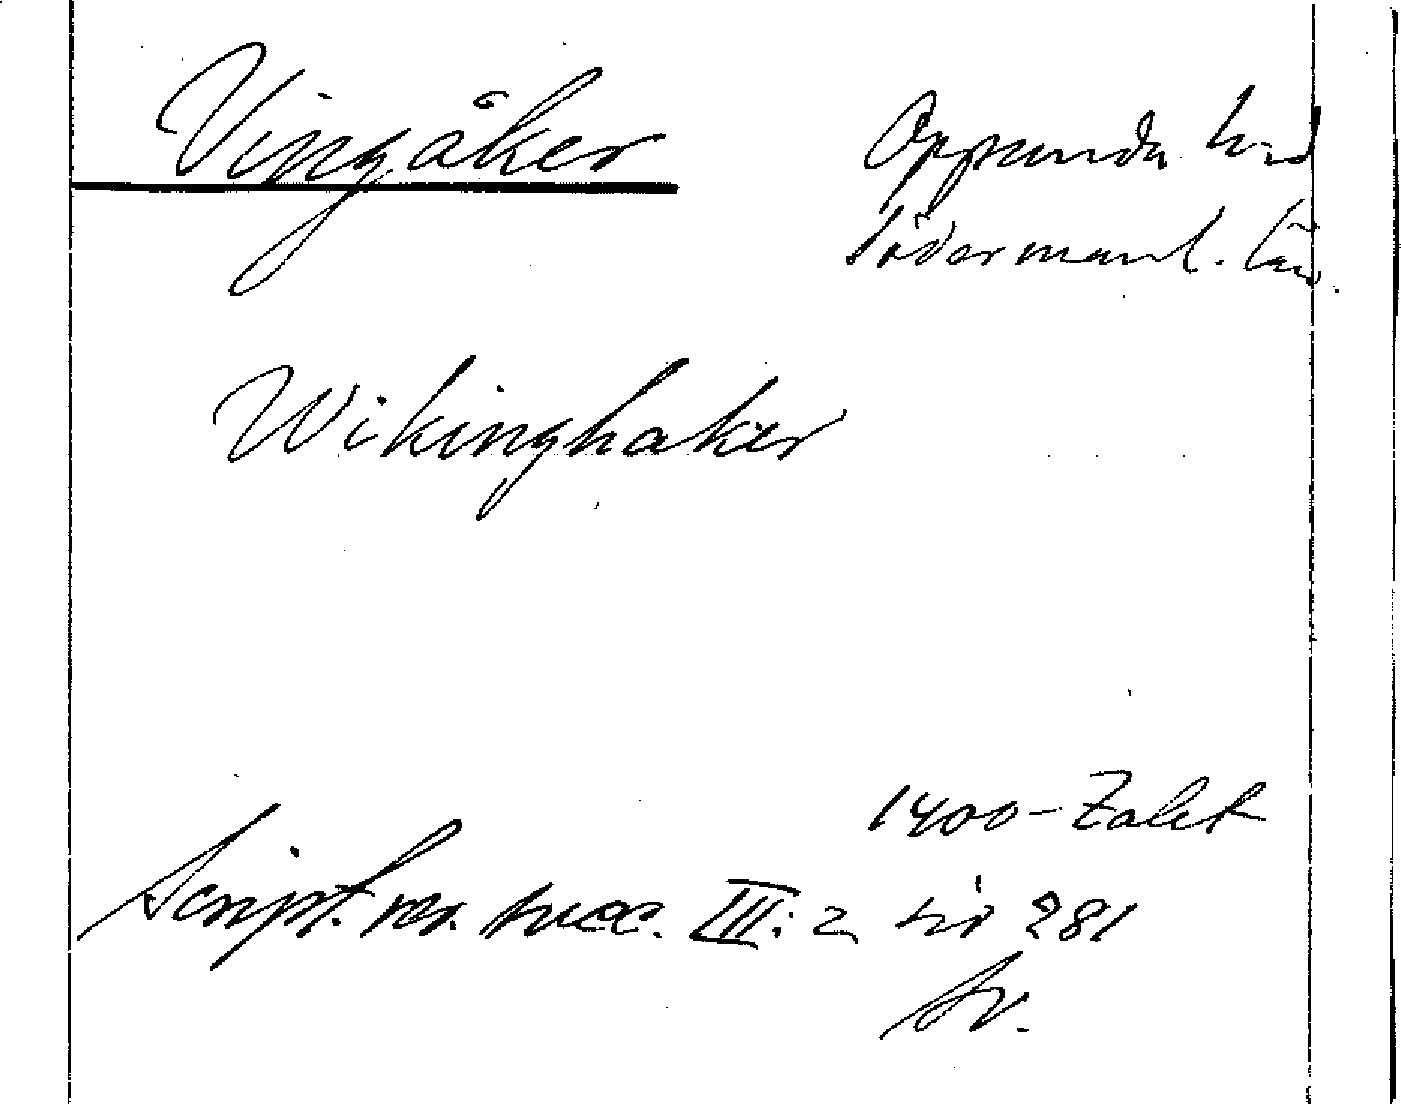 Vingåker
Oppunda hrd
Södermanl. län
Wikinghaker
1400-talet
Script. rer. suec. III:2 sid 281
sv.